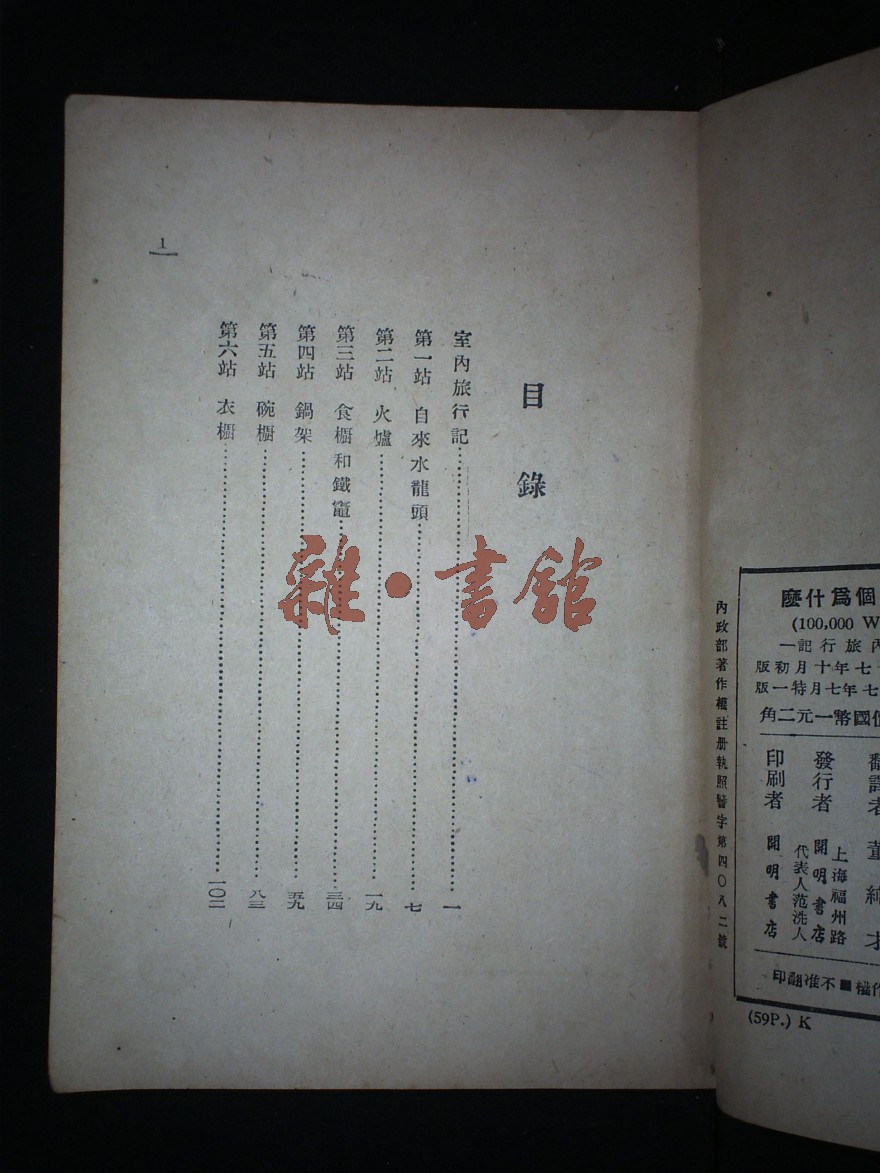 目錄
室內旅行記……一
第一站 自來水龍頭……七
第二站 火爐……一九
第三站 食櫥和鐵竈……三四
第四站 鍋架……五九
第五站 碗櫥……八三
第六站 衣櫥……一〇二
1
雜·書館
個爲什麼
(100,000 W
內旅行記一
七年十月初版
七年七月特一版
價國幣一元二角
翻譯者 董純才
發行者 開明書店
上海福州路
代表人范洗人
印刷者 開明書店
作權■不准翻印
(59P.) K
內政部著作權註册執照警字第四〇八二號